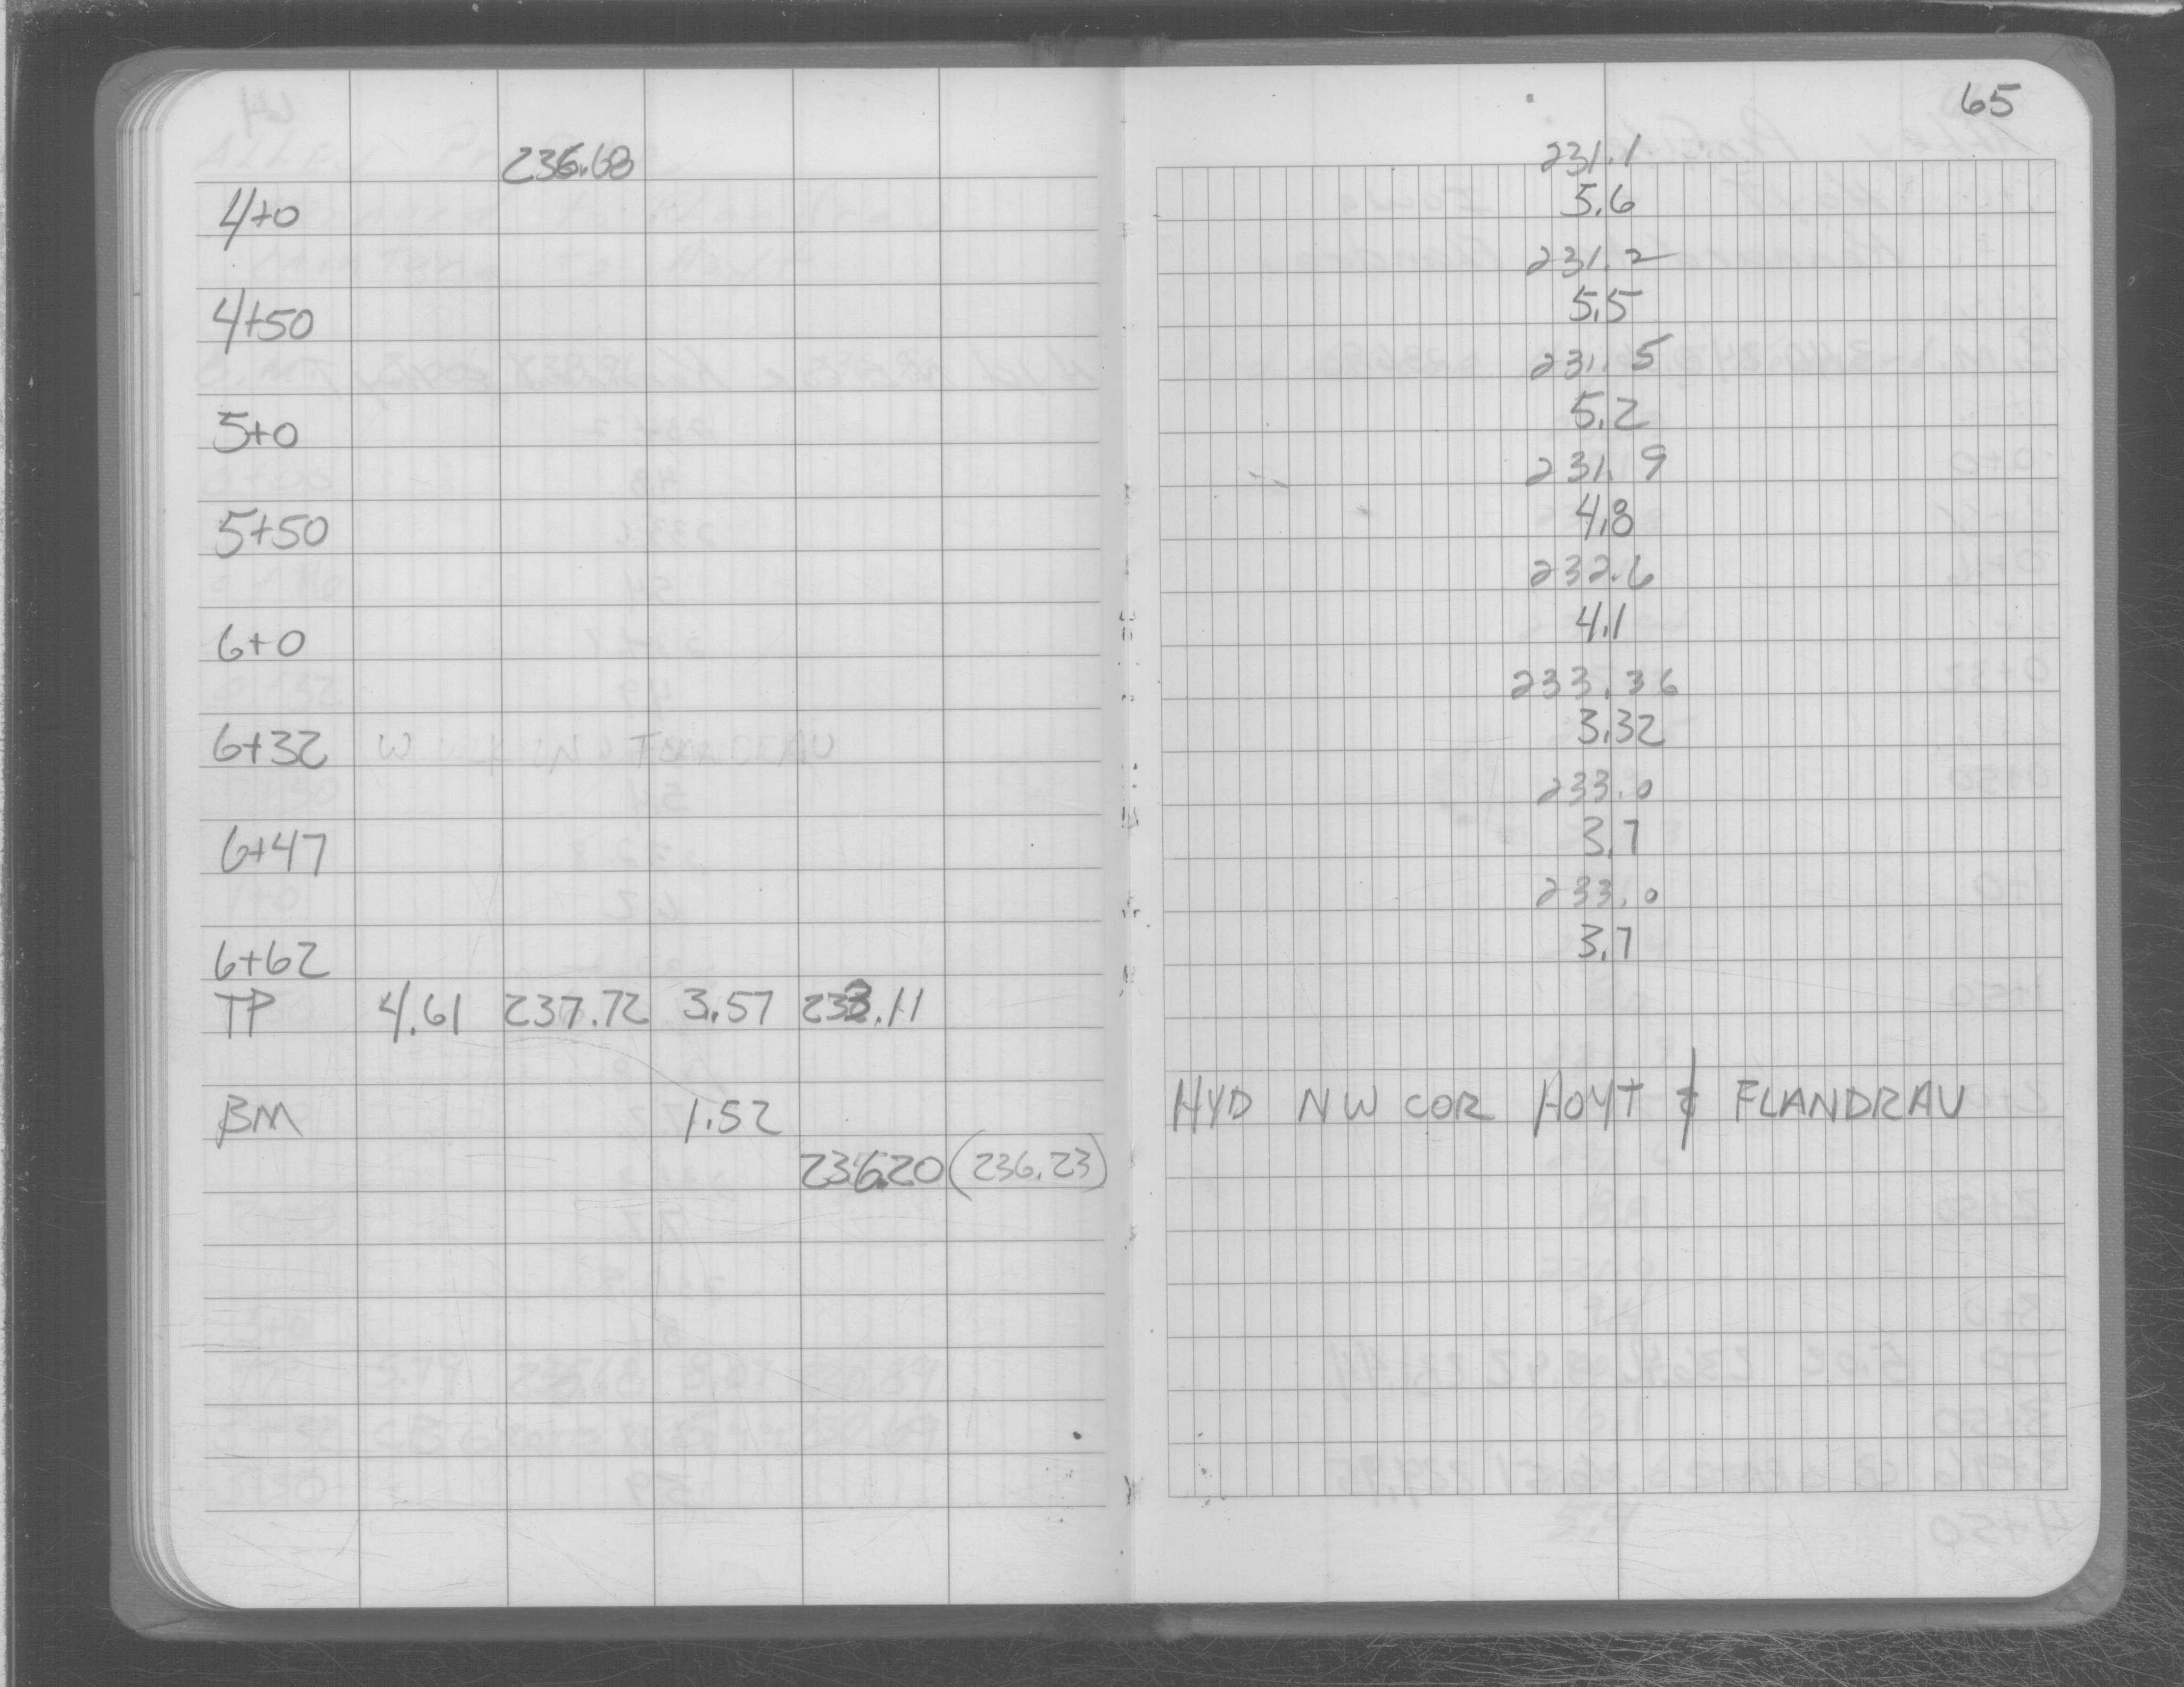 65
236.68 231.1
4+0 5.6
231.2
4+50 5.5
231.5
5+0 5.2
231.9
5+50 4.8
232.6
6+0 4.1
233.36
6+32 W 3.32
233.0
6+47 3.7
233.0
6+62 3.7
TP 4.61 237.72 3.57 233.11
BM 1.52 HYD NW COR HOYT & FLANDRAU
236.20 (236.23)